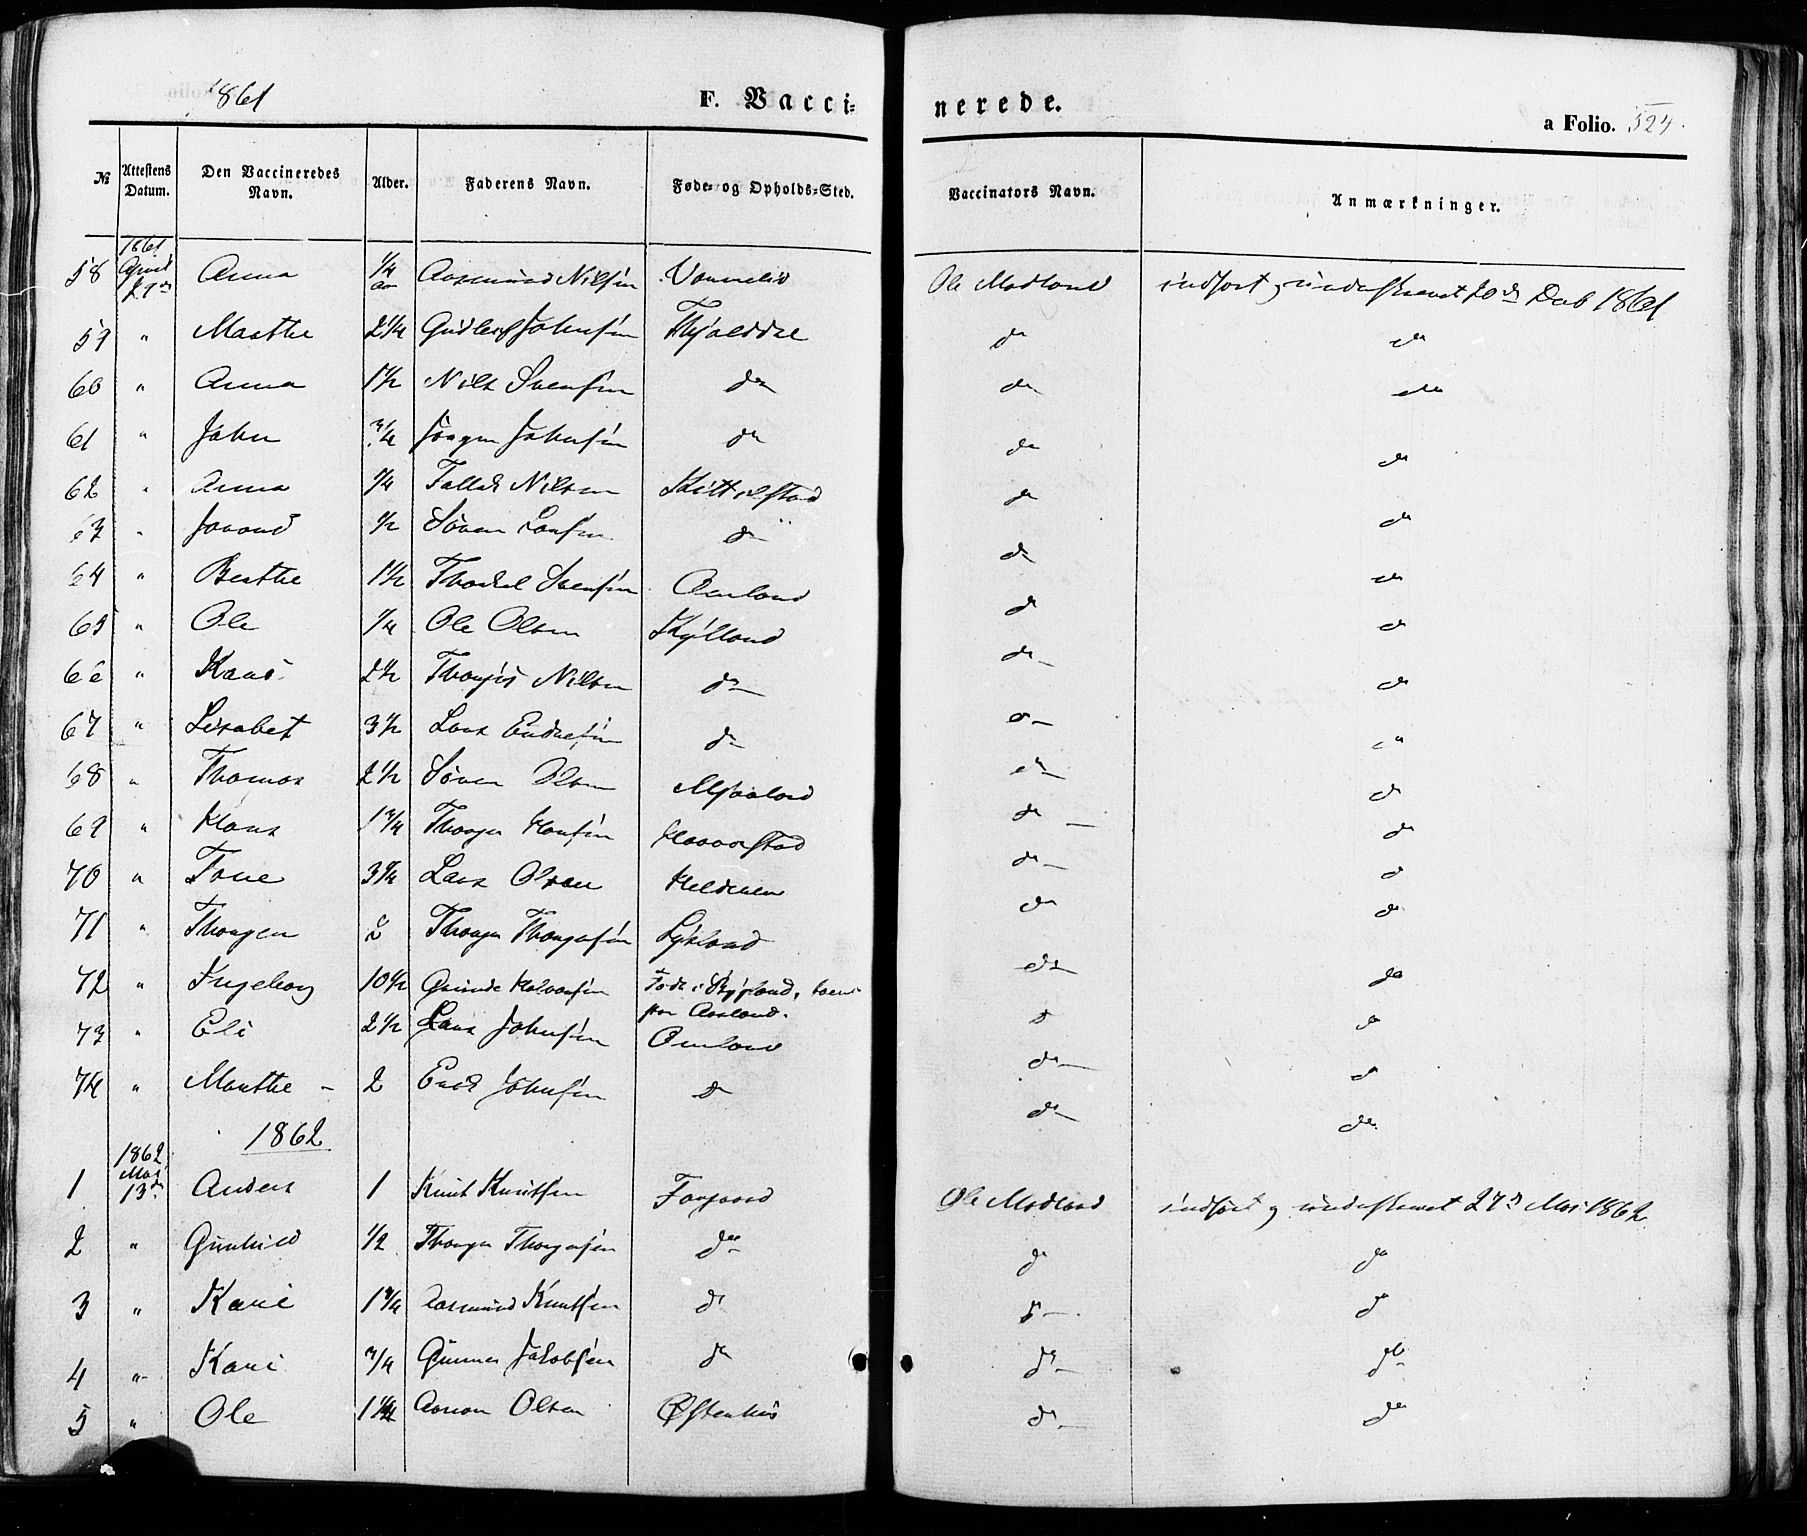 1861
F. Vacci-
nerede.
a Folio. 524.
№ Attestens Datum. Den Vaccineredes Navn. Alder. Faderens Navn. Føde- og Opholds-Sted. Vaccinators Navn. Anmærkninger.
1861
58 April 29de Anna 1/4 aar Aasmund Nilsen Ole Modland indført og
59 " Marthe 2 1/4 Gudleif Johnsen do do
60 " Anna 1 1/2 Nils Svensen do do do
61 " John 3/4 Jørgen Johnsen do do do
62 " Anna 1/4 Tallak Nilsen Kittilstad do do
63 " Joraand 1/2 Søren Larsen do do do
64 " Berthe 1 1/2 Thorkel Svensen Omland do do
65 " Ole 1/4 Ole Olsen Kylland do do
66 " Kari 2 1/2 Thorgis Nilsen do do do
67 " Lisabet 3 1/2 Lars Endresen do do do
68 " Thomas 2 1/2 Søren Olsen Mjaaland do do
69 " Hans 1 3/4 Thorger Hansen Haavorstad do do
70 " Tone 3 1/4 Lars Olsen do do
71 " Thorger 2 Thorger Thorgersen Lykland do do
72 " Ingeborg 10 1/2 Gunde Halvorsen Født i Bygland, do do
fra Aasland.
73 " Eli 2 1/2 Lars Johnsen Omland do do
74 " Marthe - 2 Erik Johnsen do do do
1862
1862
1 Mai 13de Anders 1 Knut Knutsen Faagaard Ole Modland indført og underskrevet 27de Mai 1862
2 " Gunhild 1/2 Thorger Thorgersen do do do
3 " Kari 1 3/4 Aasmund Knutsen do do do
4 " Kari 3/4 Gunner Jakobsen do do do
5 " Ole 1 1/4 Aanon Olsen Østenhus do do